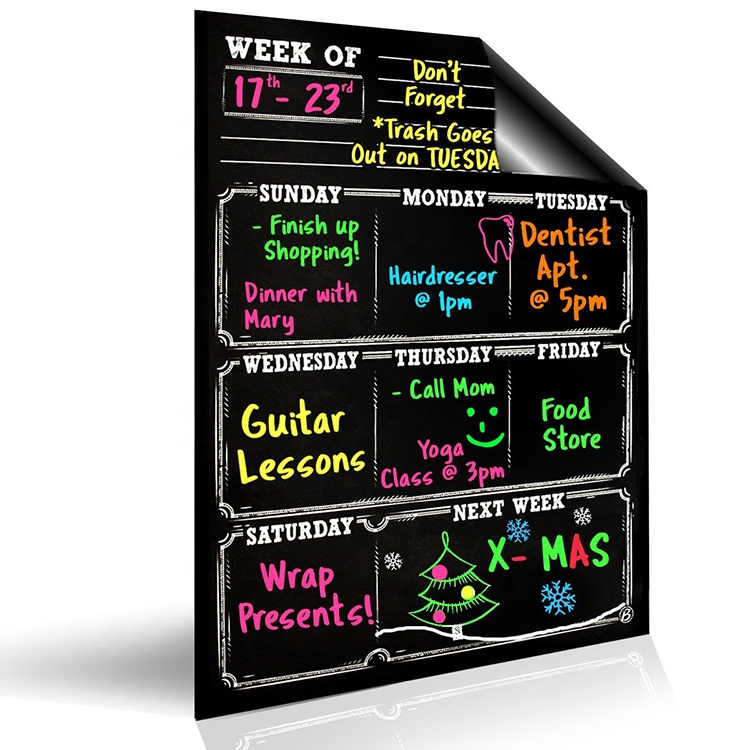 WEEK OF
17th - 23rd
Don't
Forget
*Trash Goes
Out on TUESDA
SUNDAY
- Finish up
Shopping!
Dinner with
Mary
MONDAY
Hairdresser
@ 1pm
TUESDAY
Dentist
Apt.
@ 5pm
WEDNESDAY
Guitar
Lessons
THURSDAY
- Call Mom
Yoga
Class @ 3pm
FRIDAY
Food
Store
SATURDAY
Wrap
Presents!
NEXT WEEK
X-MAS
B